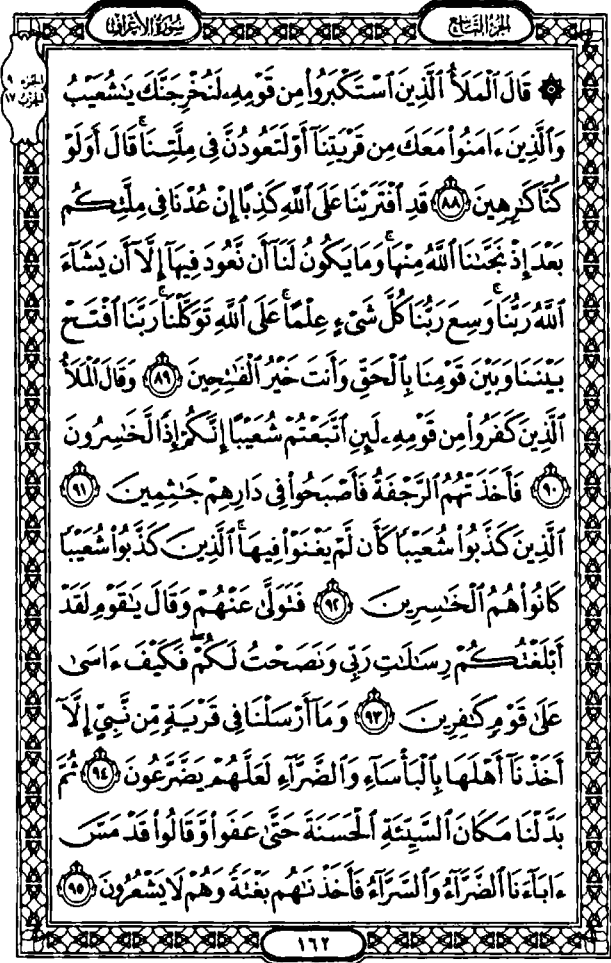 سُورَةُ الأَعْرَافِ
الجُزْءُ التَّاسِعُ
الجُزْء ٩
الحِزْب ١٧
۞ قَالَ ٱلْمَلَأُ ٱلَّذِينَ ٱسْتَكْبَرُوا۟ مِن قَوْمِهِۦ لَنُخْرِجَنَّكَ يَـٰشُعَيْبُ
وَٱلَّذِينَ ءَامَنُوا۟ مَعَكَ مِن قَرْيَتِنَآ أَوْ لَتَعُودُنَّ فِى مِلَّتِنَا ۚ قَالَ أَوَلَوْ
كُنَّا كَـٰرِهِينَ ﴿٨٨﴾ قَدِ ٱفْتَرَيْنَا عَلَى ٱللَّهِ كَذِبًا إِنْ عُدْنَا فِى مِلَّتِكُم
بَعْدَ إِذْ نَجَّىٰنَا ٱللَّهُ مِنْهَا ۚ وَمَا يَكُونُ لَنَآ أَن نَّعُودَ فِيهَآ إِلَّآ أَن يَشَآءَ
ٱللَّهُ رَبُّنَا ۚ وَسِعَ رَبُّنَا كُلَّ شَىْءٍ عِلْمًا ۚ عَلَى ٱللَّهِ تَوَكَّلْنَا ۚ رَبَّنَا ٱفْتَحْ
بَيْنَنَا وَبَيْنَ قَوْمِنَا بِٱلْحَقِّ وَأَنتَ خَيْرُ ٱلْفَـٰتِحِينَ ﴿٨٩﴾ وَقَالَ ٱلْمَلَأُ
ٱلَّذِينَ كَفَرُوا۟ مِن قَوْمِهِۦ لَئِنِ ٱتَّبَعْتُمْ شُعَيْبًا إِنَّكُمْ إِذًا لَّخَـٰسِرُونَ
﴿٩٠﴾ فَأَخَذَتْهُمُ ٱلرَّجْفَةُ فَأَصْبَحُوا۟ فِى دَارِهِمْ جَـٰثِمِينَ ﴿٩١﴾
ٱلَّذِينَ كَذَّبُوا۟ شُعَيْبًا كَأَن لَّمْ يَغْنَوْا۟ فِيهَا ۚ ٱلَّذِينَ كَذَّبُوا۟ شُعَيْبًا
كَانُوا۟ هُمُ ٱلْخَـٰسِرِينَ ﴿٩٢﴾ فَتَوَلَّىٰ عَنْهُمْ وَقَالَ يَـٰقَوْمِ لَقَدْ
أَبْلَغْتُكُمْ رِسَـٰلَـٰتِ رَبِّى وَنَصَحْتُ لَكُمْ ۖ فَكَيْفَ ءَاسَىٰ
عَلَىٰ قَوْمٍ كَـٰفِرِينَ ﴿٩٣﴾ وَمَآ أَرْسَلْنَا فِى قَرْيَةٍ مِّن نَّبِىٍّ إِلَّآ
أَخَذْنَآ أَهْلَهَا بِٱلْبَأْسَآءِ وَٱلضَّرَّآءِ لَعَلَّهُمْ يَضَّرَّعُونَ ﴿٩٤﴾ ثُمَّ
بَدَّلْنَا مَكَانَ ٱلسَّيِّئَةِ ٱلْحَسَنَةَ حَتَّىٰ عَفَوا۟ وَّقَالُوا۟ قَدْ مَسَّ
ءَابَآءَنَا ٱلضَّرَّآءُ وَٱلسَّرَّآءُ فَأَخَذْنَـٰهُم بَغْتَةً وَهُمْ لَا يَشْعُرُونَ ﴿٩٥﴾
١٦٢